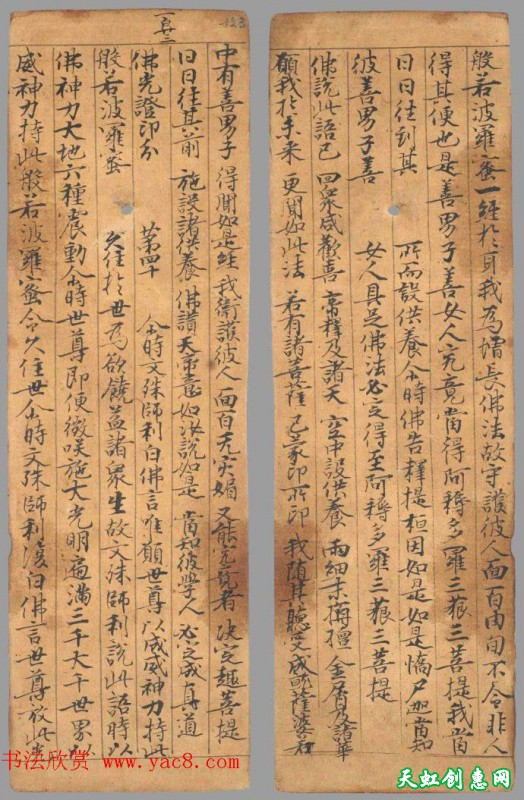 般若波羅蜜一經於身我為增長佛法故守護彼人面百由旬不令非人
得其便也是善男子善女人究竟當得阿耨多羅三藐三菩提我當
日日往到其 所而設供養尒時佛告釋提桓因如是如是憍尸加當知
彼善男子善 女人具足佛法必定得至阿耨多羅三藐三菩提
佛說此語已 四眾咸歡喜 帝釋及諸天 空中設供養 雨細末栴檀 金屑及諸華
願我於未來 更聞如此法 若有諸菩薩 已蒙印所印 我隨其聽受 成
一頁二
123
中有善男子 得聞如是經 我衛護彼人 面百无灾 又能究竟者 決定趣菩提
日日往其前 施設諸供養 佛讚天帝意 如汝說如是 當知彼學人 必定成真道
佛光證印分 第四十 尒時文殊師利白佛言唯願世尊以威神力持此
般若波羅蜜 久住於世為欲饒益諸眾生故文殊師利說此語時以
佛神力大地六種震動尒時世尊即便微笑施大光明遍滿三千大千世界以
威神力持此般若波羅蜜令久住世尒時文殊師利復白佛言世尊放此光
书法欣赏 www.yac8.com
天虹创惠网